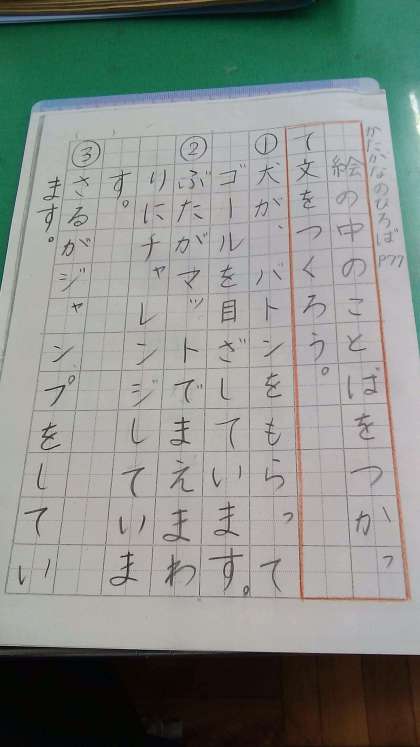 かたかなのひろば P77
絵の中のことばをつかっ
て文をつくろう。
①犬が、バトンをもらって
ゴールを目ざしています。
②ぶたがマットでまえまわ
りにチャレンジしていま
す。
③さるがジャンプをしてい
ます。